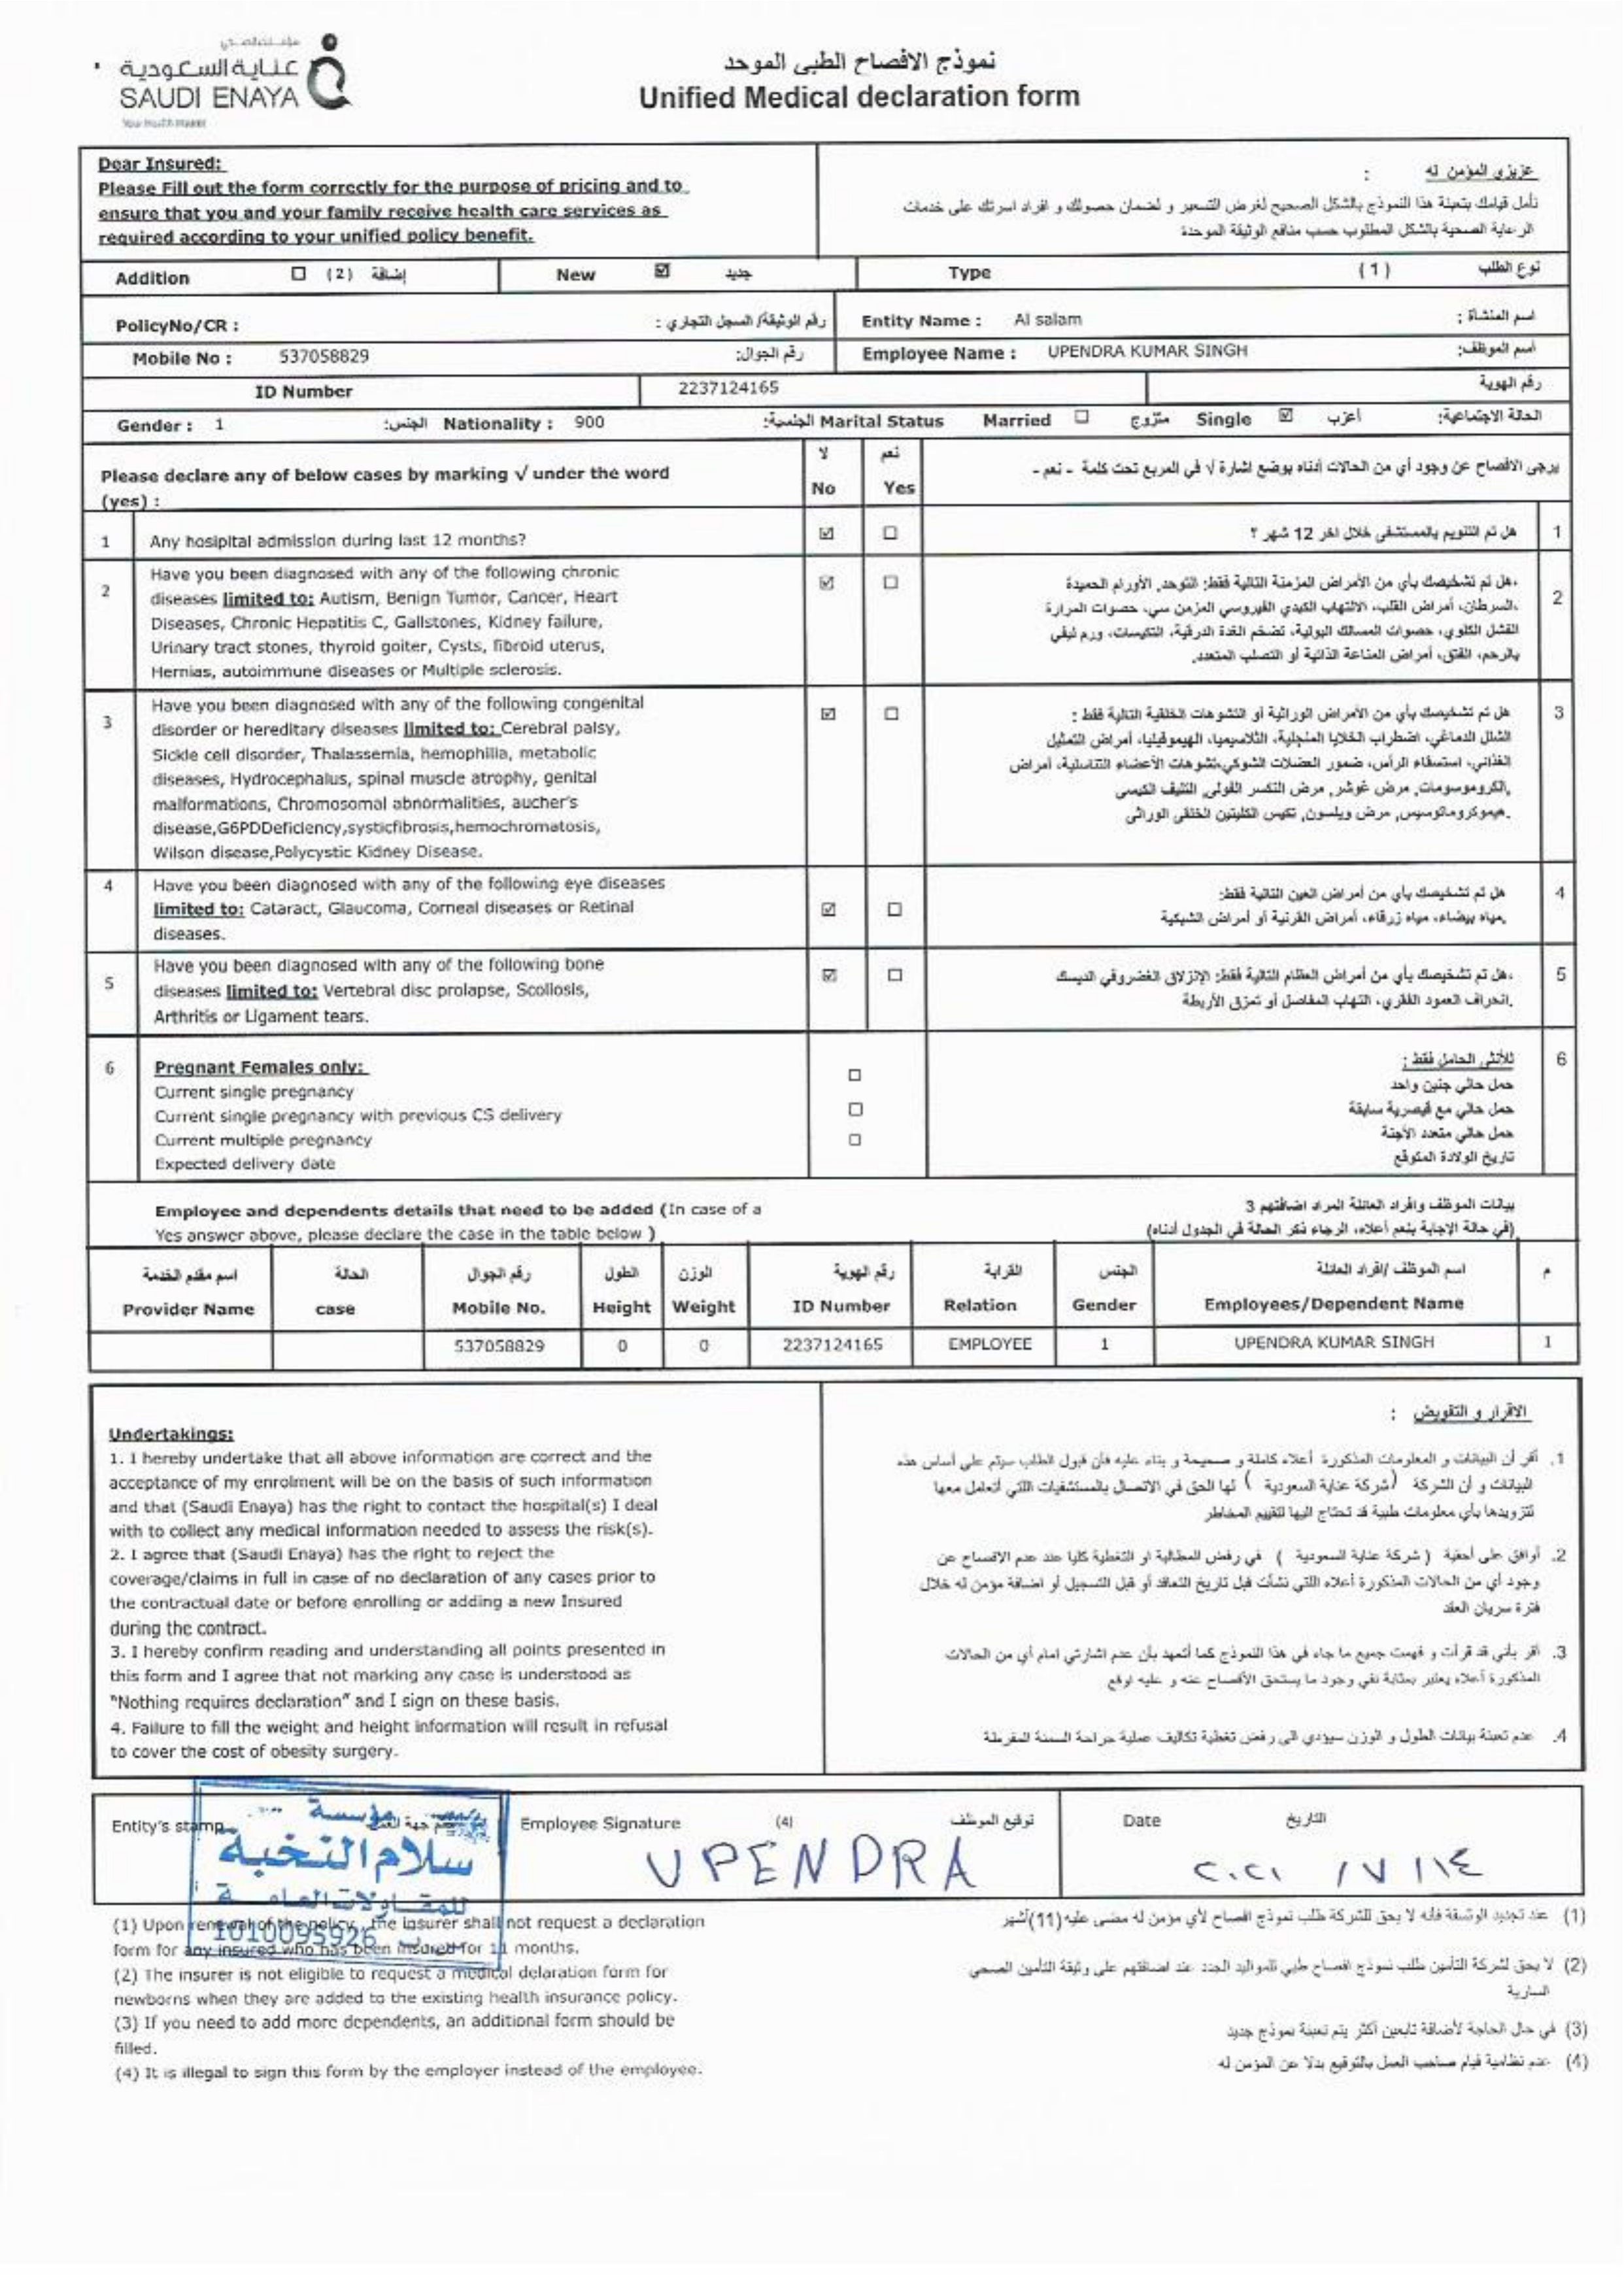 عناية السعودية
SAUDI ENAYA
نموذج الافصاح الطبى الموحد
Unified Medical declaration form
Dear Insured:
Please Fill out the form correctly for the purpose of pricing and to
ensure that you and your family receive health care services as
required according to your unified policy benefit.
عزيزي المؤمن له :
نأمل قيامك بتعبئة هذا النموذج بالشكل الصحيح لغرض التسعير و لضمان حصولك و افراد اسرتك على خدمات
الرعاية الصحية بالشكل المطلوب حسب منافع الوثيقة الموحدة
Addition ☐ (2) إضافة New ☑ جديد Type (1) نوع الطلب
PolicyNo/CR : رقم الوثيقة/ السجل التجاري : Entity Name : Al salam اسم المنشاة :
Mobile No : 537058829 رقم الجوال: Employee Name : UPENDRA KUMAR SINGH اسم الموظف:
ID Number 2237124165 رقم الهوية
Gender : 1 الجنس: Nationality : 900 الجنسية: Marital Status Married ☐ متزوج Single ☑ أعزب الحالة الاجتماعية:
Please declare any of below cases by marking √ under the word
(yes) :
لا نعم
No Yes
يرجى الافصاح عن وجود أي من الحالات أدناه بوضع اشارة √ في المربع تحت كلمة - نعم -
1 Any hosipital admission during last 12 months? ☑ ☐ هل تم التنويم بالمستشفى خلال اخر 12 شهر ؟ 1
2 Have you been diagnosed with any of the following chronic
diseases limited to: Autism, Benign Tumor, Cancer, Heart
Diseases, Chronic Hepatitis C, Gallstones, Kidney failure,
Urinary tract stones, thyroid goiter, Cysts, fibroid uterus,
Hernias, autoimmune diseases or Multiple sclerosis.
☑ ☐
هل تم تشخيصك بأي من الأمراض المزمنة التالية فقط: التوحد, الأورام الحميدة، 2
السرطان، أمراض القلب، الالتهاب الكبدي الفيروسي المزمن سي، حصوات المرارة،
الفشل الكلوي، حصوات المسالك البولية، تضخم الغدة الدرقية، التكيسات، ورم ليفي
بالرحم، الفتق، أمراض المناعة الذاتية أو التصلب المتعدد.
3 Have you been diagnosed with any of the following congenital
disorder or hereditary diseases limited to: Cerebral palsy,
Sickle cell disorder, Thalassemia, hemophilia, metabolic
diseases, Hydrocephalus, spinal muscle atrophy, genital
malformations, Chromosomal abnormalities, aucher's
disease,G6PDDeficiency,systicfibrosis,hemochromatosis,
Wilson disease,Polycystic Kidney Disease.
☑ ☐
هل تم تشخيصك بأي من الأمراض الوراثية أو التشوهات الخلقية التالية فقط : 3
الشلل الدماغي، اضطراب الخلايا المنجلية، الثلاسيميا، الهيموفيليا، أمراض التمثيل
الغذائي، استسقاء الرأس، ضمور العضلات الشوكي،تشوهات الأعضاء التناسلية، أمراض
الكروموسومات, مرض غوشر, مرض التكسر الفولى, التليف الكيسى,
هيموكروماتوسيس, مرض ويلسون, تكيس الكليتين الخلقى الوراثى.
4 Have you been diagnosed with any of the following eye diseases
limited to: Cataract, Glaucoma, Corneal diseases or Retinal
diseases.
☑ ☐
هل تم تشخيصك بأي من أمراض العين التالية فقط: 4
مياه بيضاء، مياه زرقاء، أمراض القرنية أو أمراض الشبكية.
5 Have you been diagnosed with any of the following bone
diseases limited to: Vertebral disc prolapse, Scoliosis,
Arthritis or Ligament tears.
☑ ☐
هل تم تشخيصك بأي من أمراض العظام التالية فقط: الإنزلاق الغضروفي الديسك، 5
انحراف العمود الفقري، التهاب المفاصل أو تمزق الأربطة.
6 Pregnant Females only: للأنثى الحامل فقط : 6
Current single pregnancy ☐ حمل حالي جنين واحد
Current single pregnancy with previous CS delivery ☐ حمل حالي مع قيصرية سابقة
Current multiple pregnancy ☐ حمل حالي متعدد الأجنة
Expected delivery date تاريخ الولادة المتوقع
Employee and dependents details that need to be added (In case of a
Yes answer above, please declare the case in the table below )
بيانات الموظف وافراد العائلة المراد اضافتهم 3
(في حالة الإجابة بنعم أعلاه، الرجاء ذكر الحالة في الجدول أدناه)
اسم مقدم الخدمة الحالة رقم الجوال الطول الوزن رقم الهوية القرابة الجنس اسم الموظف /افراد العائلة م
Provider Name case Mobile No. Height Weight ID Number Relation Gender Employees/Dependent Name
537058829 0 0 2237124165 EMPLOYEE 1 UPENDRA KUMAR SINGH 1
Undertakings:
1. I hereby undertake that all above information are correct and the
acceptance of my enrolment will be on the basis of such information
and that (Saudi Enaya) has the right to contact the hospital(s) I deal
with to collect any medical information needed to assess the risk(s).
2. I agree that (Saudi Enaya) has the right to reject the
coverage/claims in full in case of no declaration of any cases prior to
the contractual date or before enrolling or adding a new Insured
during the contract.
3. I hereby confirm reading and understanding all points presented in
this form and I agree that not marking any case is understood as
"Nothing requires declaration" and I sign on these basis.
4. Failure to fill the weight and height information will result in refusal
to cover the cost of obesity surgery.
الاقرار و التفويض :
1. أقر أن البيانات و المعلومات المذكورة أعلاه كاملة و صحيحة و بناء عليه فأن قبول الطلب سيتم على أساس هذه
البيانات و أن الشركة (شركة عناية السعودية ) لها الحق في الاتصال بالمستشفيات اللتي أتعامل معها
لتزويدها بأي معلومات طبية قد تحتاج اليها لتقييم المخاطر
2. أوافق على أحقية ( شركة عناية السعودية ) في رفض المطالبة او التغطية كليا عند عدم الافصاح عن
وجود أي من الحالات المذكورة أعلاه اللتي نشأت قبل تاريخ التعاقد أو قبل التسجيل أو اضافة مؤمن له خلال
فترة سريان العقد
3. أقر بأني قد قرأت و فهمت جميع ما جاء في هذا النموذج كما أتعهد بأن عدم اشارتي امام أي من الحالات
المذكورة أعلاه يعتبر بمثابة نفي وجود ما يستحق الأفصاح عنه و عليه اوقع
4. عدم تعبئة بيانات الطول و الوزن سيؤدي الى رفض تغطية تكاليف عملية جراحة السمنة المفرطة
Entity's stamp Employee Signature (4) توقيع الموظف Date التاريخ
مؤسسة
سلام النخبة
للمقاولات العامة
1010095926
UPENDRA
٢٠٢١ / ٧ / ١٤
(1) Upon renewal of the policy, the insurer shall not request a declaration
form for any insured who has been insured for 11 months.
(2) The insurer is not eligible to request a medical delaration form for
newborns when they are added to the existing health insurance policy.
(3) If you need to add more dependents, an additional form should be
filled.
(4) It is illegal to sign this form by the employer instead of the employee.
(1) عند تجديد الوثيقة فأنه لا يحق للشركة طلب نموذج افصاح لأي مؤمن له مضى عليه (11)أشهر
(2) لا يحق لشركة التأمين طلب نموذج افصاح طبي للمواليد الجدد عند اضافتهم على وثيقة التأمين الصحي
السارية
(3) في حال الحاجة لأضافة تابعين أكثر يتم تعبئة نموذج جديد
(4) عدم نظامية قيام صاحب العمل بالتوقيع بدلا عن المؤمن له